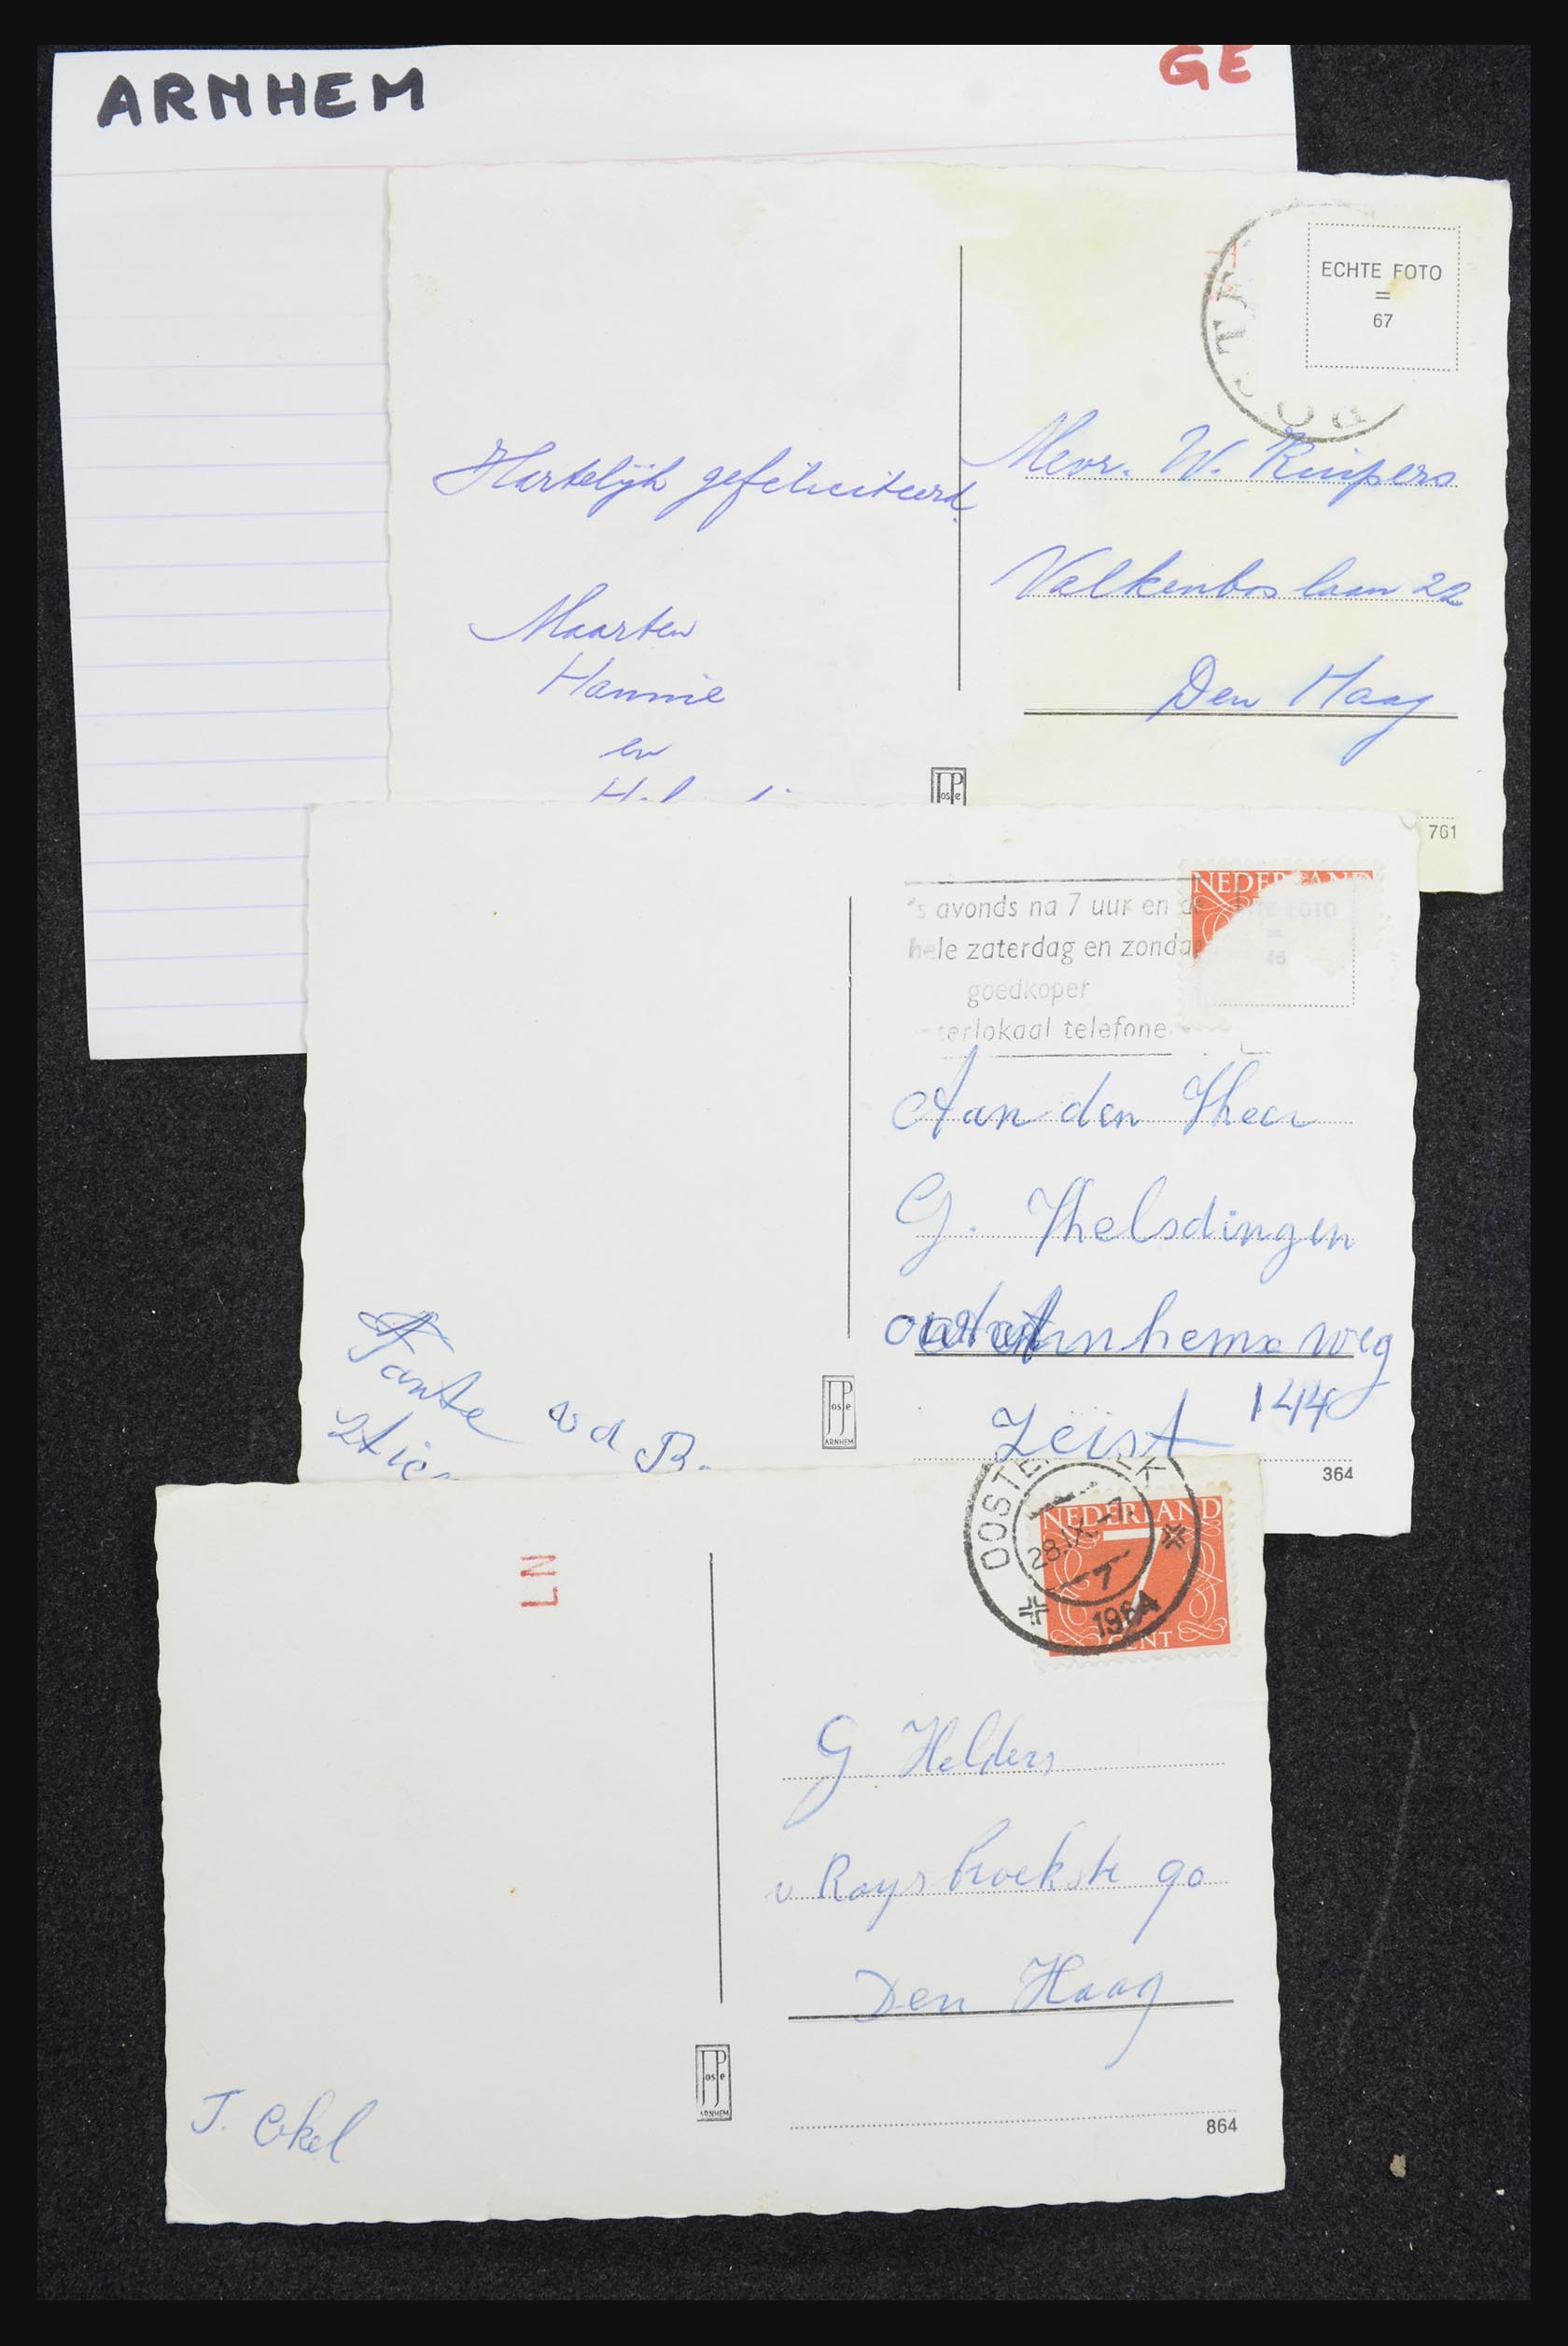 ARNHEM
GE
ECHTE FOTO
=
67
Hartelijk gefeliciteerd.
Maarten
Hannie
en
Mevr. W. Kuipers
Valkenbos laan 22
Den Haag
JP
oste
761
's avonds na 7 uur en de
hele zaterdag en zondag
goedkoper
terlokaal telefone
NEDERLAND
FOTO
=
46
Aan den Heer
G. Helsdingen
Arnhemseweg
144
Zeist
Tante v d B.
JP
oste
ARNHEM
364
LN
OOSTE EK
28.IX
7
1964
NEDERLAND
7
CENT
G Helders
v Ruysbroekstr 90
Den Haag
J.
JP
oste
ARNHEM
864